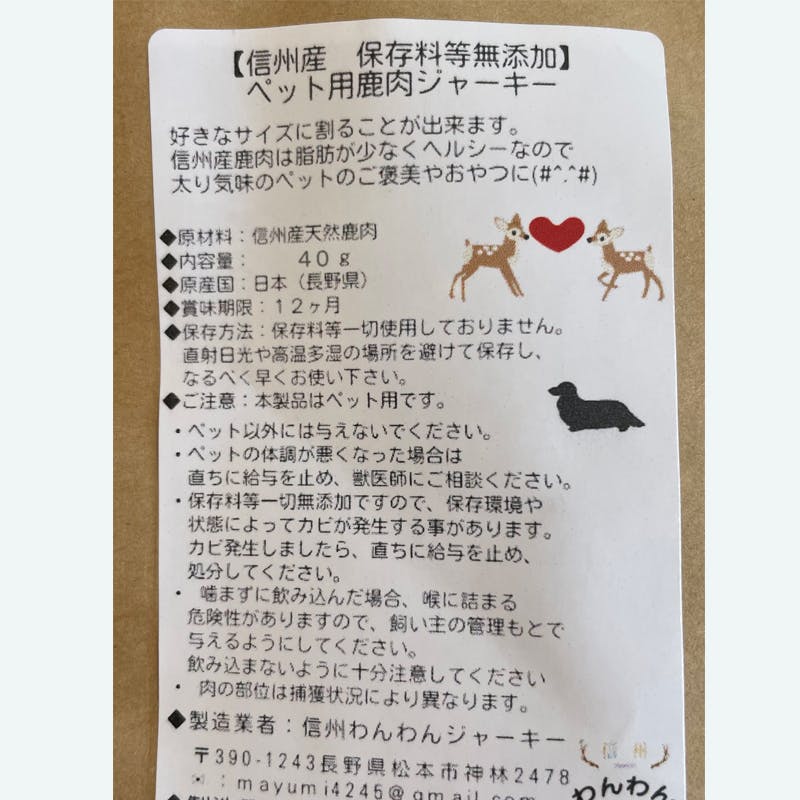 【信州産　保存料等無添加】
ペット用鹿肉ジャーキー
好きなサイズに割ることが出来ます。
信州産鹿肉は脂肪が少なくヘルシーなので
太り気味のペットのご褒美やおやつに(#^.^#)
◆原材料：信州産天然鹿肉
◆内容量：　　４０ｇ
◆原産国：日本（長野県）
◆賞味期限：１２ヶ月
◆保存方法：保存料等一切使用しておりません。
直射日光や高温多湿の場所を避けて保存し、
なるべく早くお使い下さい。
◆ご注意：本製品はペット用です。
・ペット以外には与えないでください。
・ペットの体調が悪くなった場合は
直ちに給与を止め、獣医師にご相談ください。
・保存料等一切無添加ですので、保存環境や
状態によってカビが発生する事があります。
カビ発生しましたら、直ちに給与を止め、
処分してください。
・ 噛まずに飲み込んだ場合、喉に詰まる
危険性がありますので、飼い主の管理もとで
与えるようにしてください。
飲み込まないように十分注意してください
・ 肉の部位は捕獲状況により異なります。
◆製造業者：信州わんわんジャーキー
〒390-1243長野県松本市神林2478
✉：mayumi4245@gmail.com
信州
わんわん